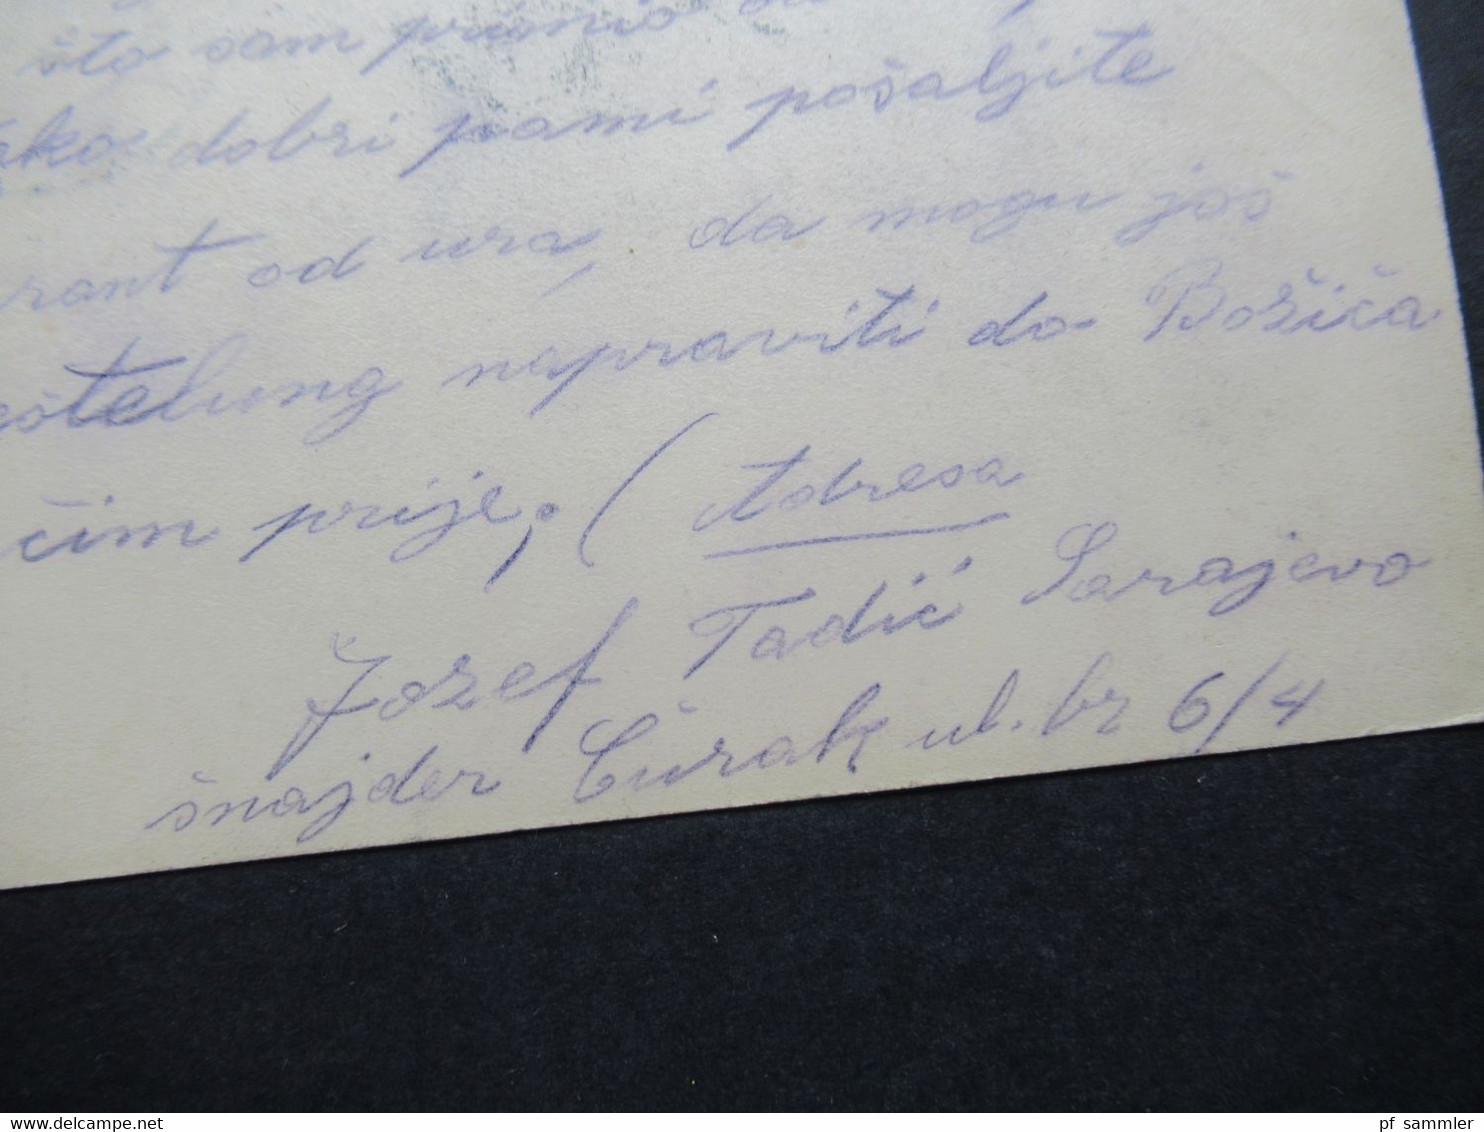 što sam primio
tako dobri pa mi pošaljite
rant od ura, da mogu još
eštelung napraviti do Božića
čim prije; ( Adresa
Jozef Tadić Sarajevo
šnajder Čurak ul. br 6/4
pf sammler